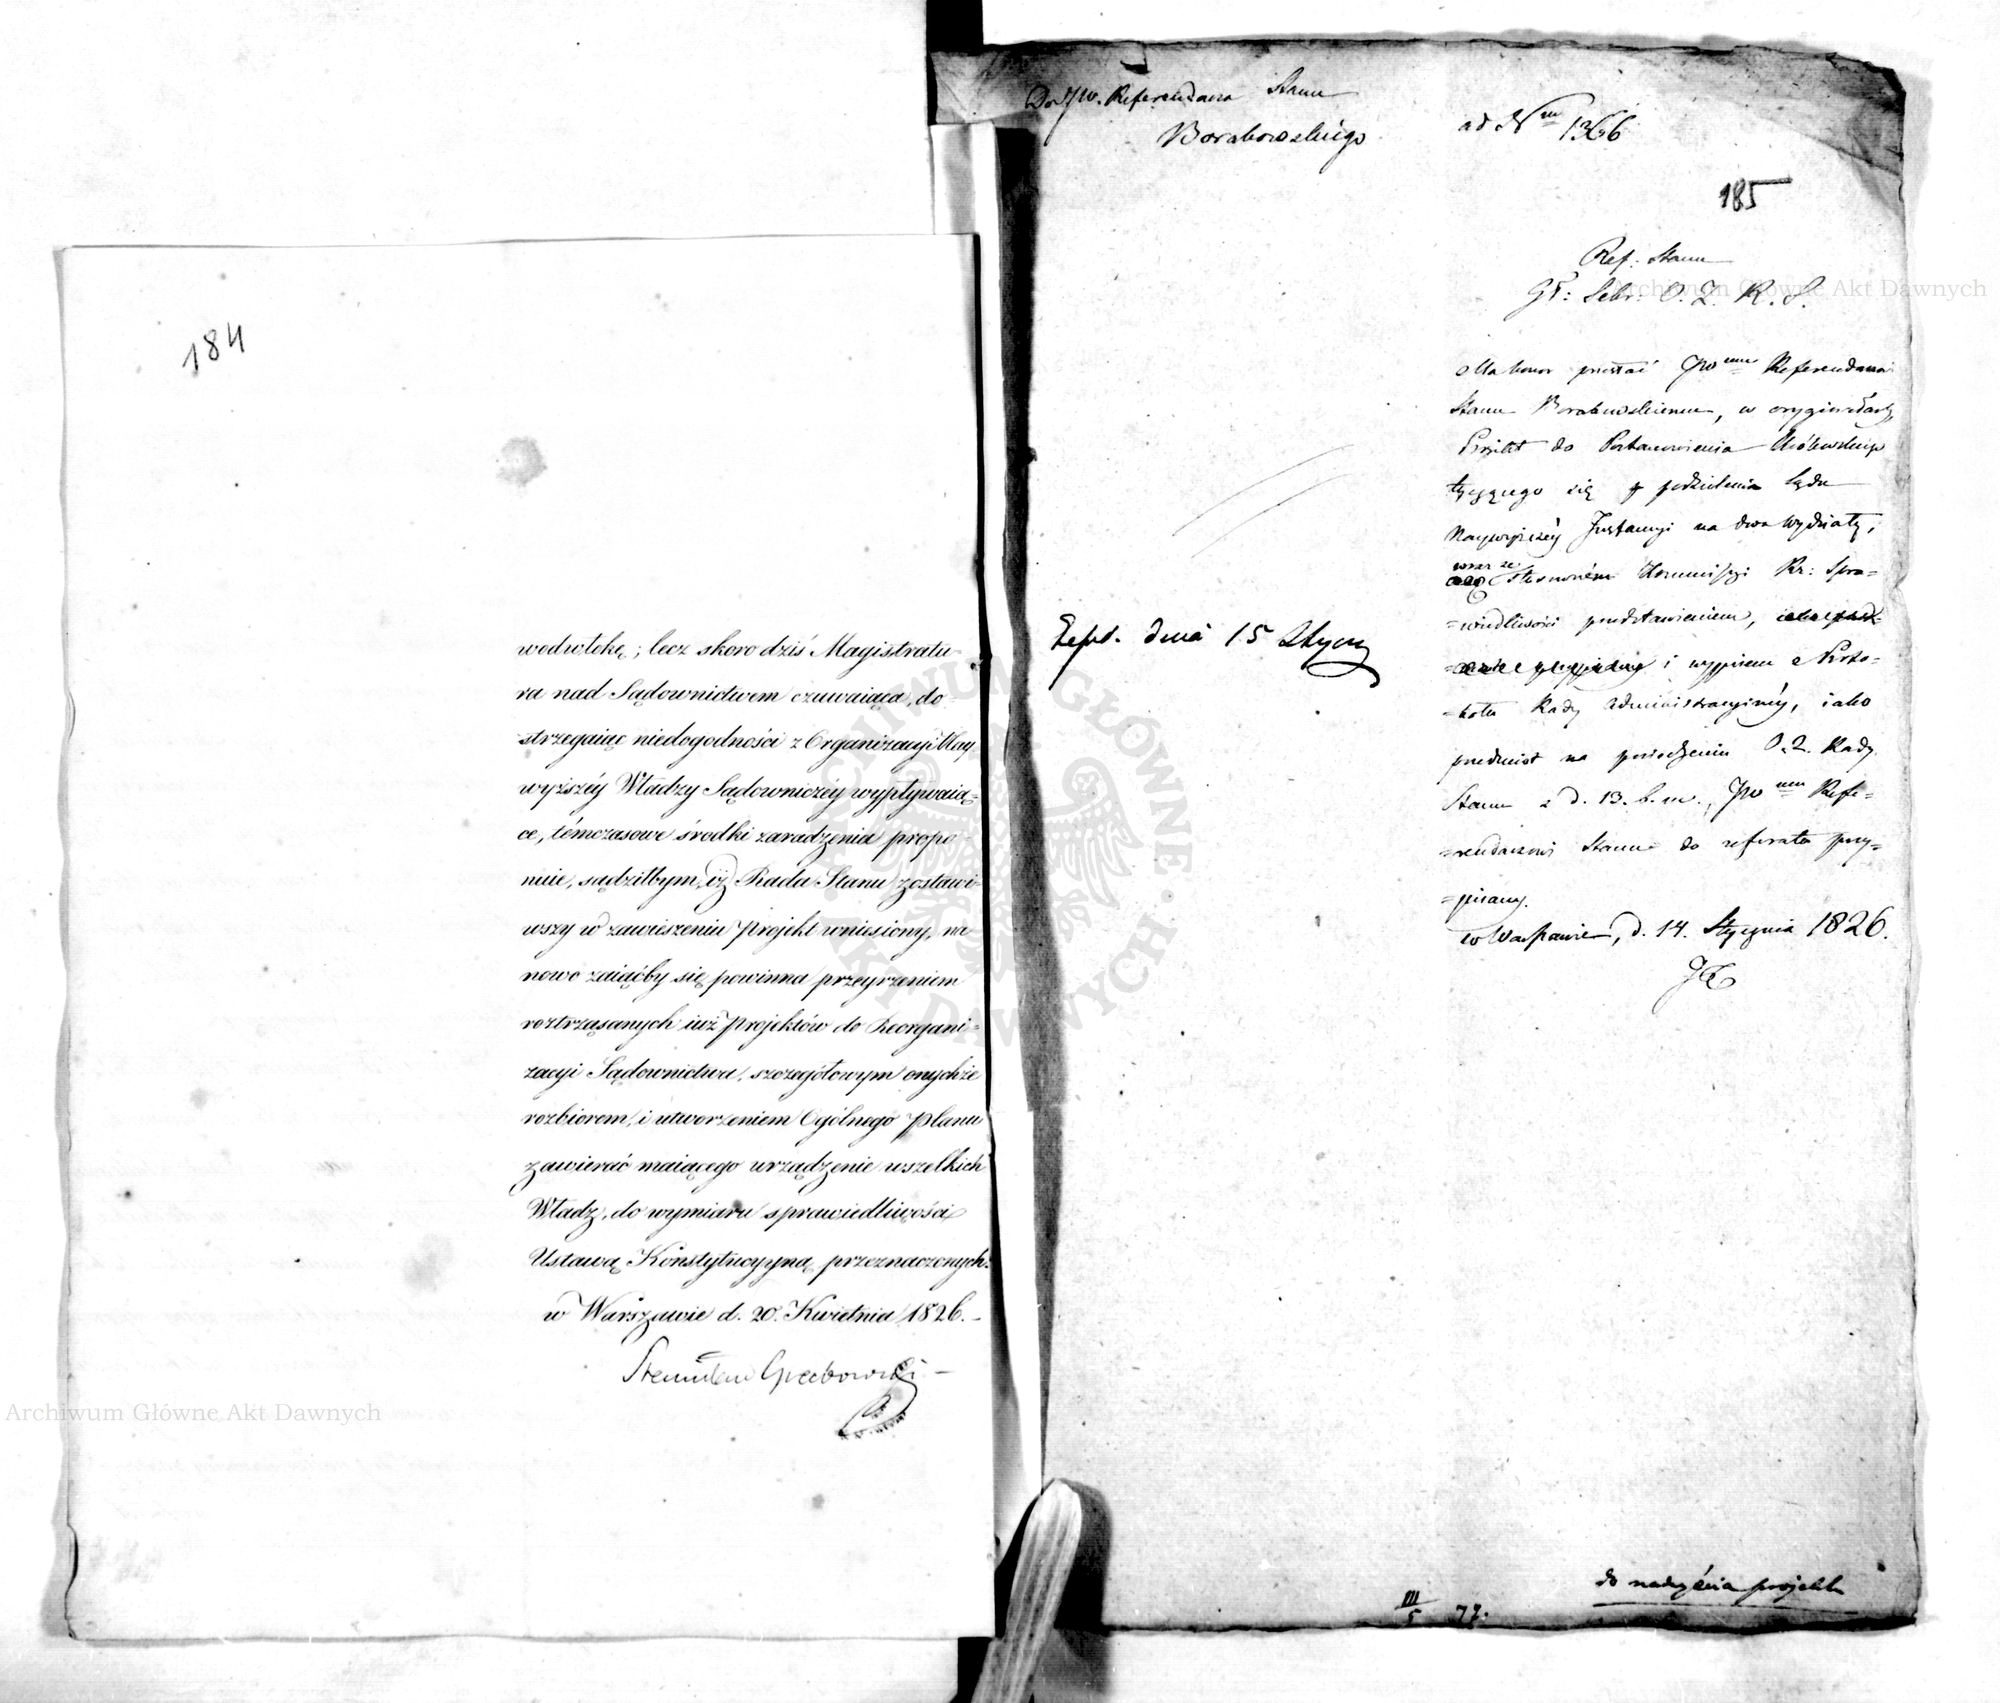 184
wodwłokę; lecz skoro dziś Magistratu-
ra nad Sądownictwem czuwaiąca, do-
strzegaiąc niedogodności z Organizacyi Nay
wyższéy Władzy Sądowniczéy wypływaią-
ce, témczasowe środki zaradzenia propo-
nuie, sądziłbym, iż Rada Stanu zostawi-
wszy w zawieszeniu Projekt wniesiony, na
nowo zaiąćby się powinna przeyrzeniem
roztrząsanych iuż Projektów do Reorgani-
zacyi Sądownictwa, szczegółowym onychże
rozbiorem, i utworzeniem Ogólnego Planu
zawierać maiącego urządzenie wszelkich
Władz, do wymiaru sprawiedliwości
Ustawą Konstytucyyną przeznaczonych.
w Warszawie d. 20. Kwietnia 1826. -
Stanisław Grabowski -
Do JW. Referendarza Stanu
Borakowskiego
ad Nrm 1366
185
Ref: Stanu
Gł: Sekr: O. Z. R. S.
Ma honor przesłać JWmu Referendarzowi
Stanu Borakowskiemu, w oryginałach
Projekt do Postanowienia Królewskiego
tyczącego się podzielenia Sądu
Naywyższéy Instancyi na dwa Wydziały,
wraz ze
stosowném Kommissyi Rz: Spra=
=wiedliwości przedstawieniem,
i wypisem z Proto=
=kołu Rady Administracyinéy, iako
przedmiot na posiedzeniu O. Z. Rady
Stanu z d. 13. b. m., JWmu Refe=
=rendarzowi Stanu do referatu przy=
=pisany.
w Warszawie, d. 14. Stycznia 1826.
Exped. dnia 15 Stycz
do nadeyścia projektu
III/5 77.
Archiwum Główne Akt Dawnych
Archiwum Główne Akt Dawnych
ARCHIWUM GŁÓWNE · AKT DAWNYCH ·